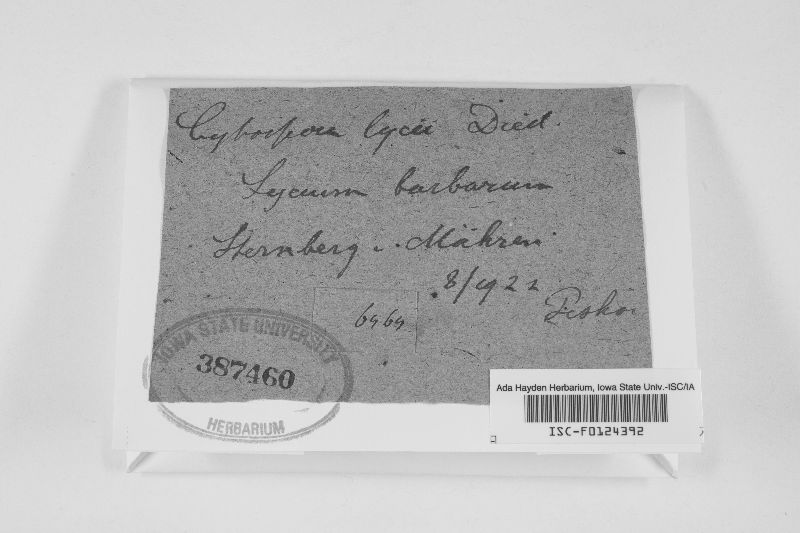 Cytospora lycii Died.
Lycium barbarum
Sternberg i. Mähren
8/1922
Piskoř
6969
IOWA STATE UNIVERSITY
387460
HERBARIUM
Ada Hayden Herbarium, Iowa State Univ.-ISC/IA
ISC-F0124392